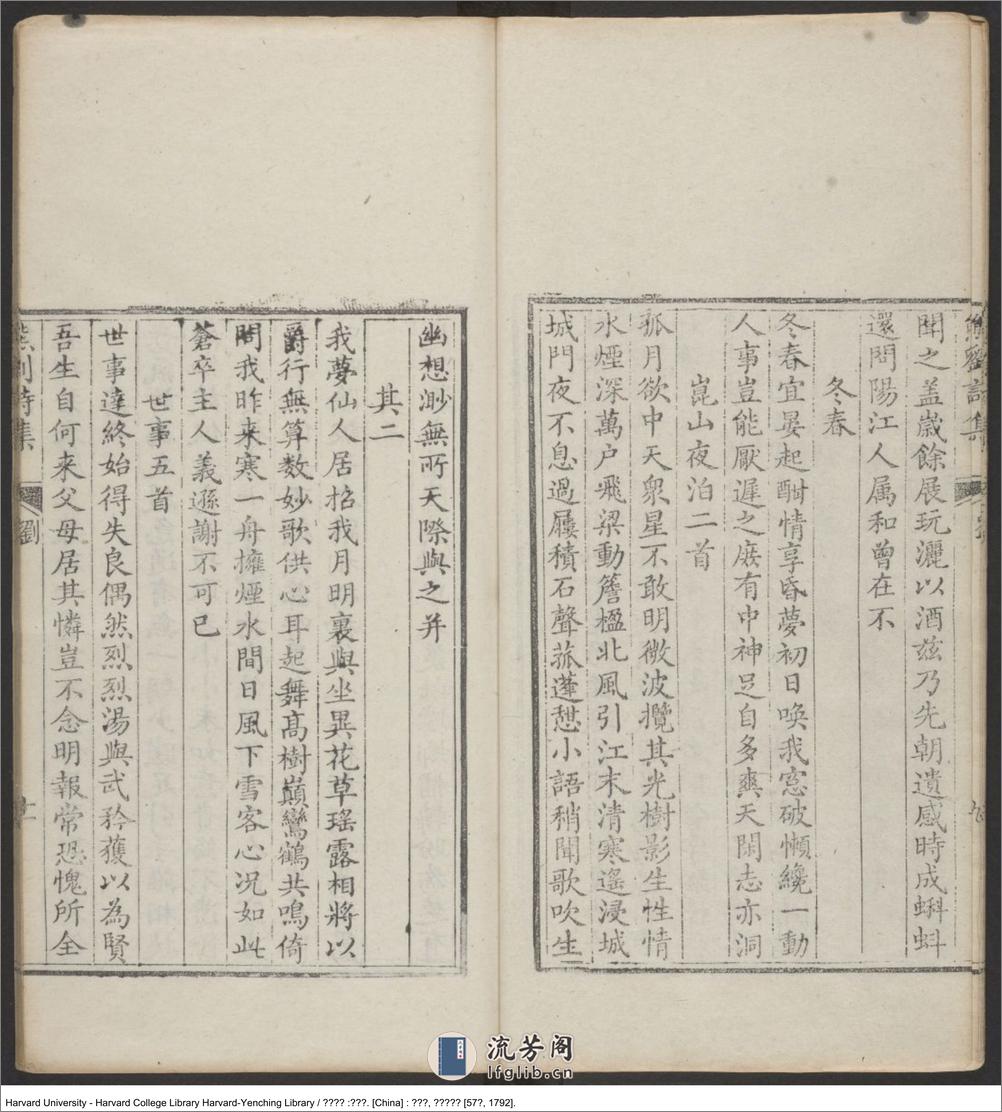 熊劉詩集
聞之盖嵗餘展玩灑以酒兹乃先朝遺感時成蝌蚪
還問陽江人属和曾在不
冬春
冬春宜晏起酣情享昏夢初日喚我窓破懶纔一動
人事豈能厭遲之庻有中神足自多爽天閑志亦洞
崑山夜泊二首
孤月欲中天衆星不敢明微波攬其光樹影生性情
水煙深萬户飛梁動簷楹北風引江末清寒遙浸城
城門夜不息過屨積石聲菰蓬憇小語稍聞歌吹生
幽想渺無所天際與之并
其二
我夢仙人居招我月明裏與坐異花草瑶露相將以
爵行無算数妙歌供心耳起舞髙樹巔鸞鶴共鳴倚
問我昨來寒一舟擁煙水間日風下雪客心况如此
蒼卒主人義遜謝不可已
世事五首
世事達終始得失良偶然烈烈湯與武矜獲以為賢
吾生自何来父母居其憐豈不念明報常恐愧所全
熊劉詩集
劉
流芳阁
lfglib.cn
Harvard University - Harvard College Library Harvard-Yenching Library / ???? :???. [China] : ???, ????? [57?, 1792].